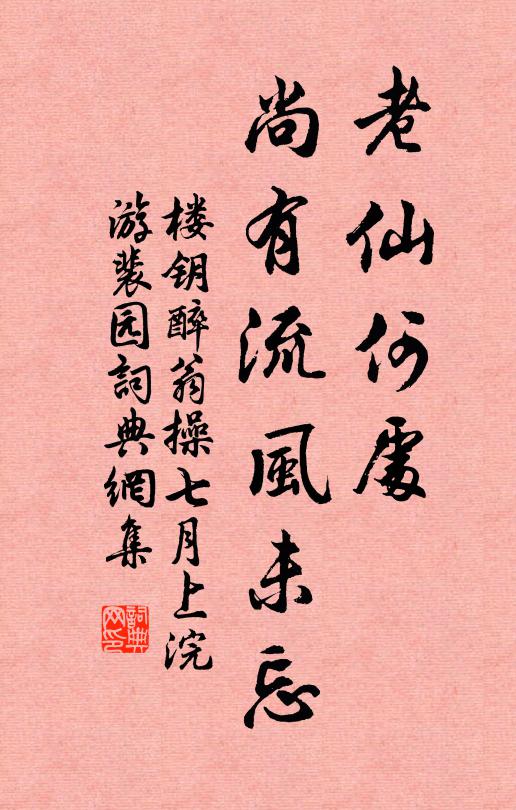 老仙何處
尚有流風未忘
楼钥醉翁操七月上浣
游裴园詞典網集
詞典网印